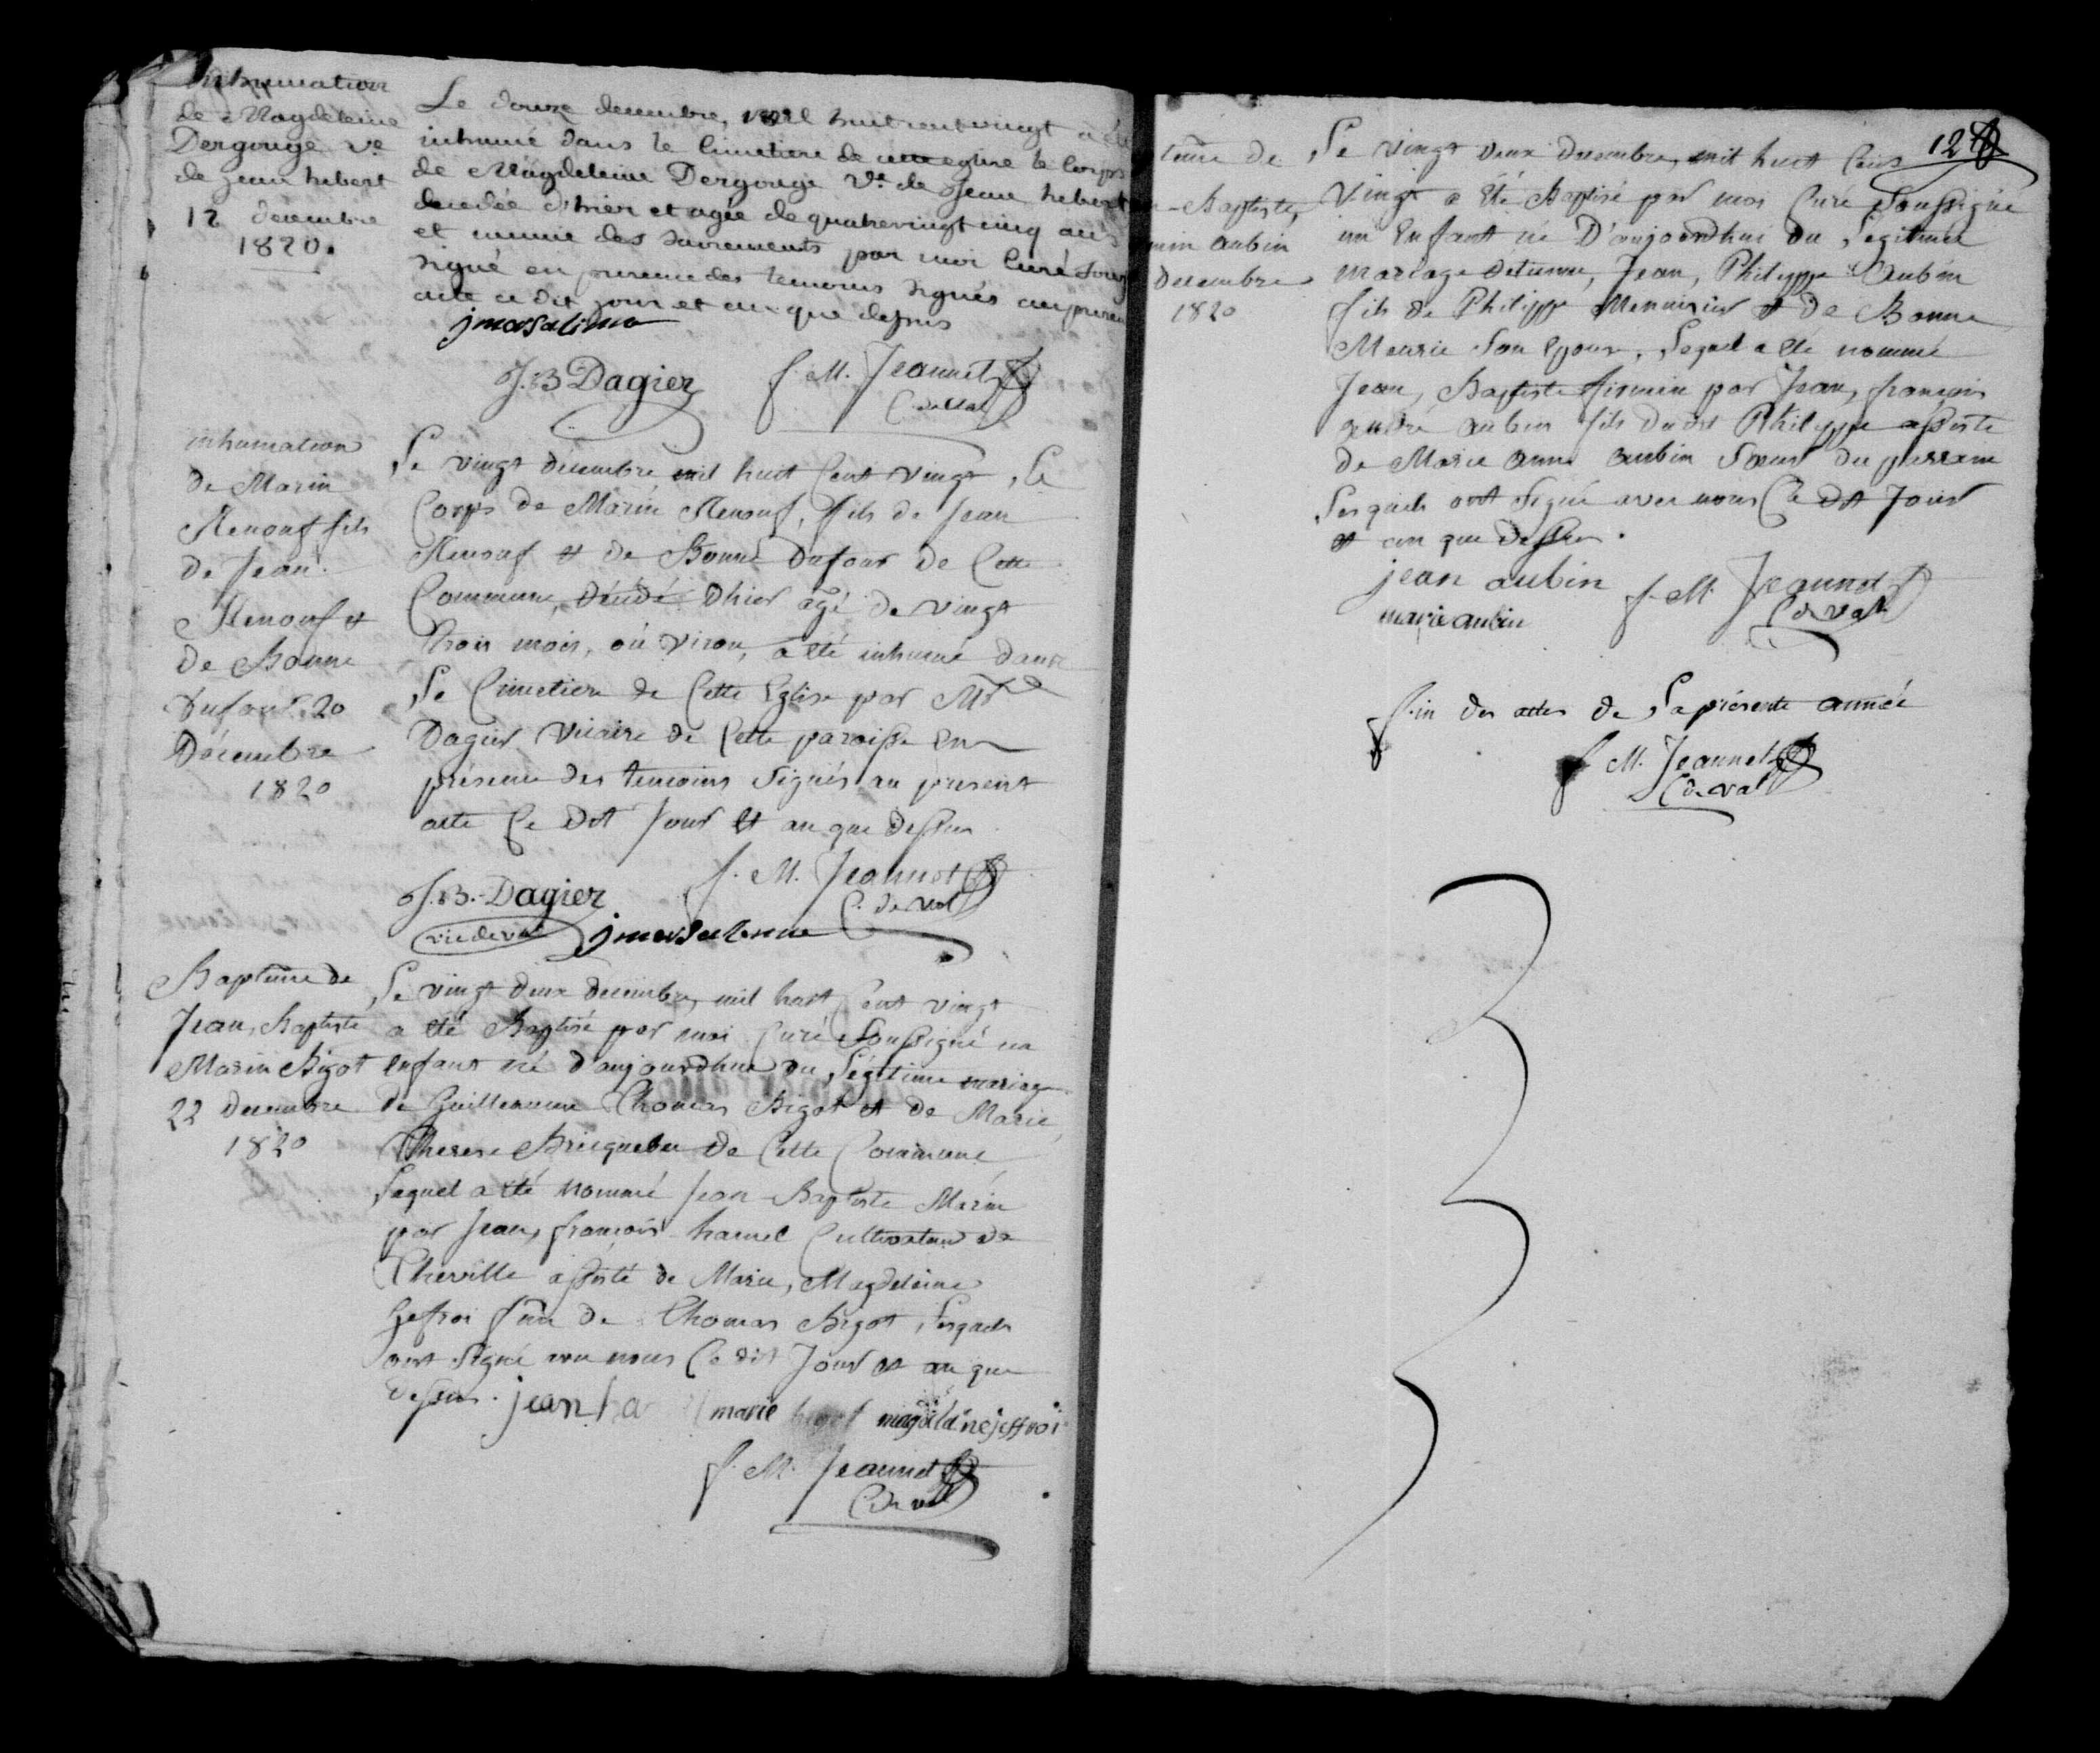 inhumation
de Magdeleine
Dergouge ve
de jean hebert
12 decembre
1820.
Le douze decembre, mil huit cent vingt a été
inhumé dans le Cimetiere de cette eglise le Corps
de Magdeleine Dergouge Ve de Jean hebert
decedée d'hier et agée de quatrevingt cinq ans
et munie des sacrements par moi Curé sous
signé en presence des temoins signés au present
acte ce dit jour et an que dessus
J.B Dagier f. M. Jeannet
C. de Val
inhumation
de Marin
Renouf fils
de Jean
Renouf et
de Bonne
Dufour 20
Décembre
1820
Le vingt décembre, mil huit Cent vingt, le
Corps de Marin Renouf, fils de Jean
Renouf et de Bonne Dufour de Cette
Commune, décédé d'hier agé de vingt
trois mois, ou viron, a été inhumé dans
le Cimetiere de Cette Eglise par Mr
Dagier Vicaire de Cette paroisse en
présence des temoins signés au present
acte Ce dit Jour et an que dessus
J.B. Dagier f. M. Jeannet
vic de val C. de Val
Baptême de
Jean, Baptiste
Marin Bigot
22 decembre
1820
Le vingt deux decembre, mil huit Cent vingt
a été Baptisé par moi Curé soussigné un
enfant né d'aujourdhui du légitime mariage
de Guillaume Thomas Bigot et de Marie,
Therese Bricquebec de Cette Commune
lequel a été nommé Jean-Baptiste Marin
par Jean, françois hamel Cultivateur de
Theville assisté de Marie, Magdeleine
Gefroi fme de Thomas Bigot, lesquels
ont signé avec nous Ce dit Jour et an que
dessus. jean ha marie bigot magdelaine jeffroi
f. M. Jeannet
C de val
12
tême de
-Baptiste,
min aubin
decembre
1820
Le vingt deux decembre, mil huit Cens
vingt a été Baptisé par moi Curé Soussigné
un Enfant né D'aujourdhui du legitime
mariage detienne, Jean, Philippe Aubin
fils de Philippe Menuisier et de Bonne
Meurie son Epouse, lequel a été nommé
Jean, Baptiste firmin par Jean, françois
andré aubin fils dudit Philippe assisté
de Marie anne aubin soeur du parrain
lesquels ont signé avec nous Ce dit Jour
et an que dessus.
jean aubin f. M. Jeannet
marie aubin C de Val
fin des actes de la présente année
f M. Jeannet
C de val